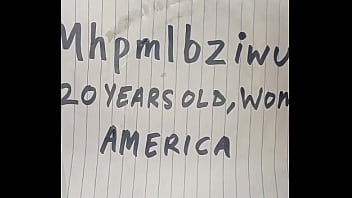 Mhpmlbziwu
20 YEARS OLD, WOM
AMERICA